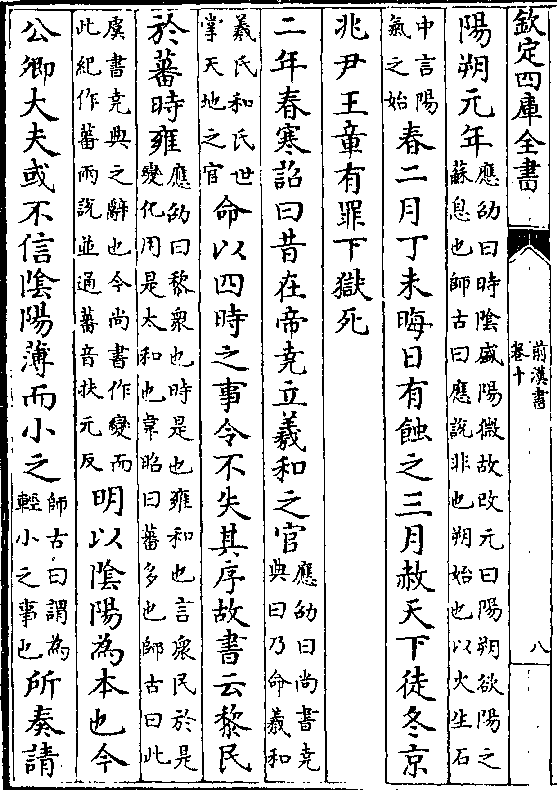 欽定四庫全書
前漢書
卷十
八
陽朔元年應劭曰時陰盛陽微故改元曰陽朔欲陽之蘇息也師古曰應說非也朔始也以火生石
中言陽氣之始春二月丁未晦日有蝕之三月赦天下徒冬京
兆尹王章有罪下獄死
二年春寒詔曰昔在帝堯立羲和之官應劭曰尚書堯典曰乃命羲和
羲氏和氏世掌天地之官命以四時之事令不失其序故書云黎民
於蕃時雍應劭曰黎衆也時是也雍和也言衆民於是變化用是太和也韋昭曰蕃多也師古曰此
虞書堯典之辭也今尚書作變而此紀作蕃兩說並通蕃音扶元反明以陰陽為本也今
公卿大夫或不信陰陽薄而小之師古曰謂為輕小之事也所奏請